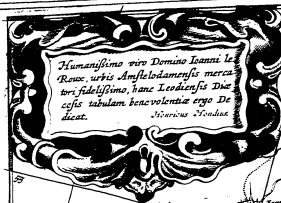 Humanißimo viro Domino Ioanni le
Roux, urbis Amstelodamensis merca
tori fidelißimo, hanc Leodiensis Diæ
cesis tabulam benevolentiæ ergo De
dicat. Henricus Hondius.